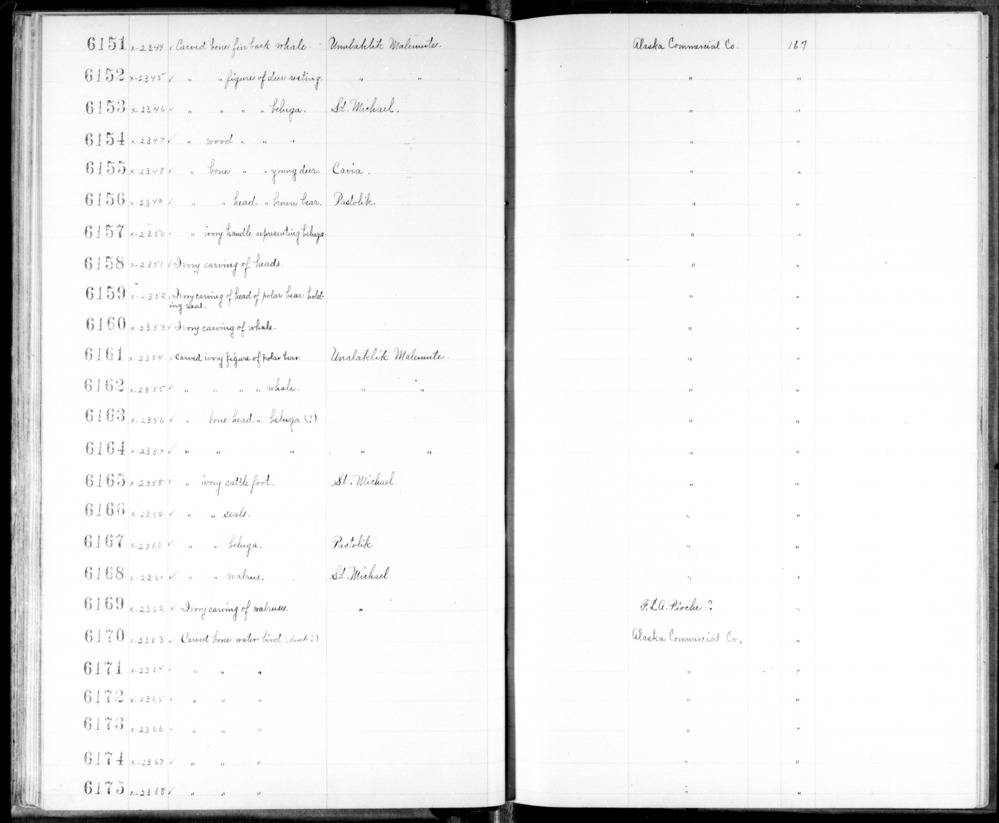 6151 x-2344 ✓ Carved bone fin back whale Unalaklik Malemute. Alaska Commercial Co. 167
6152 x-2345 ✓ " " figure of deer resting. " " " "
6153 x-2346 ✓ " " " " beluga. St. Michael. " "
6154 x-2347 ✓ " wood " " " " "
6155 x-2348 ✓ " bone " " young deer. Cavia. " "
6156 x-2349 ✓ " " head " brown bear. Pastolik. " "
6157 x-2350 " ivory handle representing beluga. " "
6158 x-2351 ✓ Ivory carving of heads. " "
6159 x-2352 ✓ Ivory carving of head of polar bear hold-
ing seal. " "
6160 x-2353 ✓ Ivory carving of whale. " "
6161 x-2354 ✓ Carved ivory figure of polar bear. Unalaklik Malemute. " "
6162 x-2355 ✓ " " " " whale. " " " "
6163 x-2356 ✓ " bone head " beluga (?) " "
6164 x-2357 ✓ " " " " " " "
6165 x-2358 ✓ " ivory cattle foot. St. Michael " "
6166 x-2359 ✓ " " seals. " "
6167 x-2360 ✓ " " beluga. Pastolik " "
6168 x-2361 ✓ " " walrus. St. Michael " "
6169 x-2362 ✓ Ivory carving of walruses. " F.L.A. Pioche? "
6170 x-2363 ✓ Carved bone water bird (duck?) Alaska Commercial Co. "
6171 x-2364 ✓ " " " " "
6172 x-2365 ✓ " " " " "
6173 x-2366 ✓ " " " " "
6174 x-2367 ✓ " " " " "
6175 x-2368 ✓ " " " " "